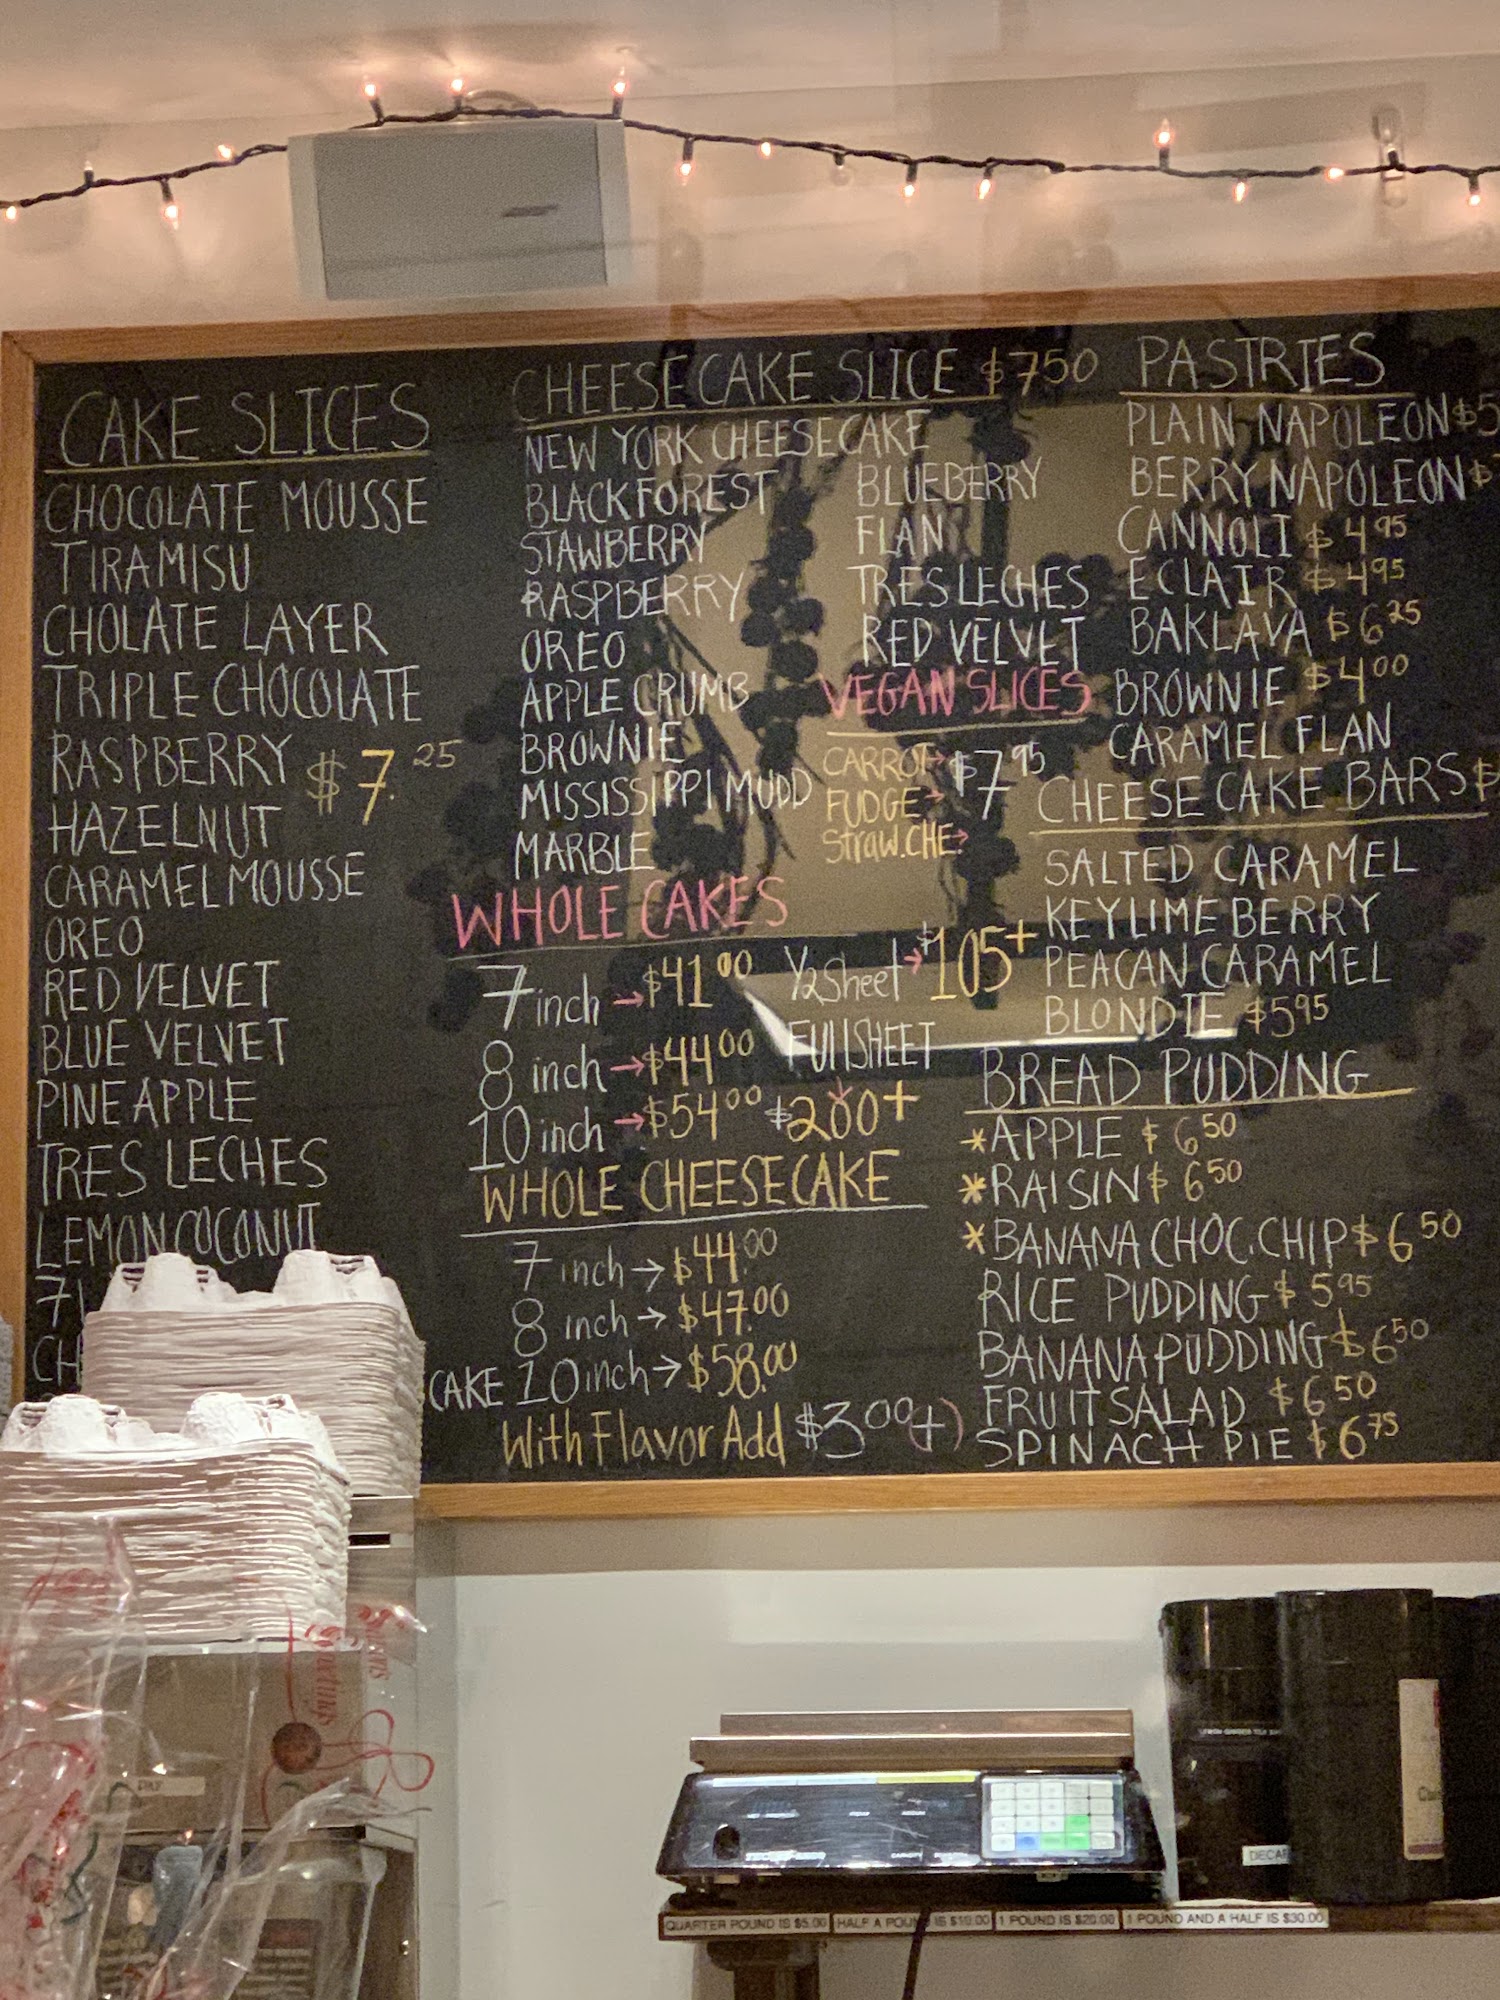 CAKE SLICES
CHOCOLATE MOUSSE
TIRAMISU
CHOLATE LAYER
TRIPLE CHOCOLATE
RASPBERRY $7.25
HAZELNUT
CARAMEL MOUSSE
OREO
RED VELVET
BLUE VELVET
PINEAPPLE
TRES LECHES
LEMON COCONUT
CHEESECAKE SLICE $750
NEW YORK CHEESECAKE
BLACKFOREST
STAWBERRY
RASPBERRY
OREO
APPLE CRUMB
BROWNIE
MISSISSIPPI MUDD
MARBLE
BLUEBERRY
FLAN
TRES LECHES
RED VELVET
VEGAN SLICES
CARROT→ $7 95
FUDGE→
Straw.CHE→
WHOLE CAKES
7 inch →$41 00
8 inch →$44 00
10 inch →$54 00
1/2 Sheet→ $105+
FUllSHEET
$200+
WHOLE CHEESECAKE
7 inch → $44.00
8 inch → $47.00
CAKE 10 inch → $58.00
With Flavor Add $3 00(+)
PASTRIES
PLAIN NAPOLEON $5
BERRY NAPOLEON $
CANNOLI $4 95
ECLAIR $4 95
BAKLAVA $6 25
BROWNIE $4 00
CARAMEL FLAN
CHEESE CAKE BARS $
SALTED CARAMEL
KEYLIME BERRY
PEACAN CARAMEL
BLONDIE $5 95
BREAD PUDDING
*APPLE $6 50
*RAISIN $6 50
*BANANA CHOC.CHIP $6 50
RICE PUDDING $5 95
BANANA PUDDING $6 50
FRUIT SALAD $6 50
SPINACH PIE $6 75
DECAF
QUARTER POUND IS $5.00
HALF A POUND IS $10.00
1 POUND IS $20.00
1 POUND AND A HALF IS $30.00